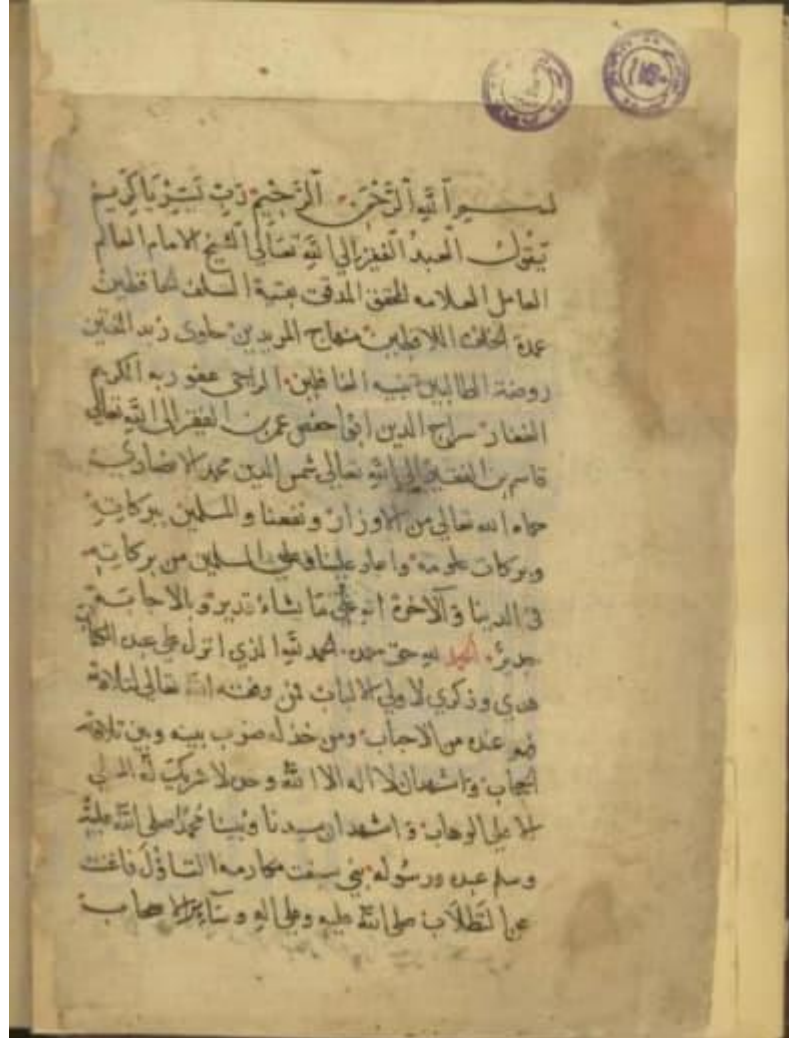 بسم الله الرحمن الرحيم رب يسر يا كريم
يقول العبد الفقير الي الله تعالي الشيخ الامام العالم
العامل العلامه المحقق المدقق بقية السلف الحافظين
عمدة الخلف اللافظين منهاج المريدين حاوى زبد المتقين
روضة الطالبين تنبيه الغافلين الراجى عفو ربه الكريم
الغفار سراج الدين ابوا حفص عمر بن الفقير الى الله تعالى
قاسم بن الفقير الي الله تعالي شمس الدين محمد الانصاري
حماه الله تعالي من الاوزار ونفعنا والمسلمين ببركاته
وبركات علومه واعاد علينا وعلى المسلمين من بركاته
في الدنيا والآخرة انه على ما يشاء قدير وبالاجابة
جدير الحمد لله حق حمده الحمد لله الذي انزل علي عبده الكتاب
هدي وذكري لاولي الالباب فمن وفقه الله تعالى لتلاوته
فهو عنده من الاحباب ومن خذله ضرب بينه وبين تلاوته
الحجاب واشهد ان لا اله الا الله وحده لا شريك له
الوهاب واشهد ان سيدنا ونبينا محمدا صلى الله عليه
وسلم عبده ورسوله نبي سبقت مكارمه السؤل فاغنت
عن التطلاب صلى الله عليه وعلى اله وسائر الاصحاب